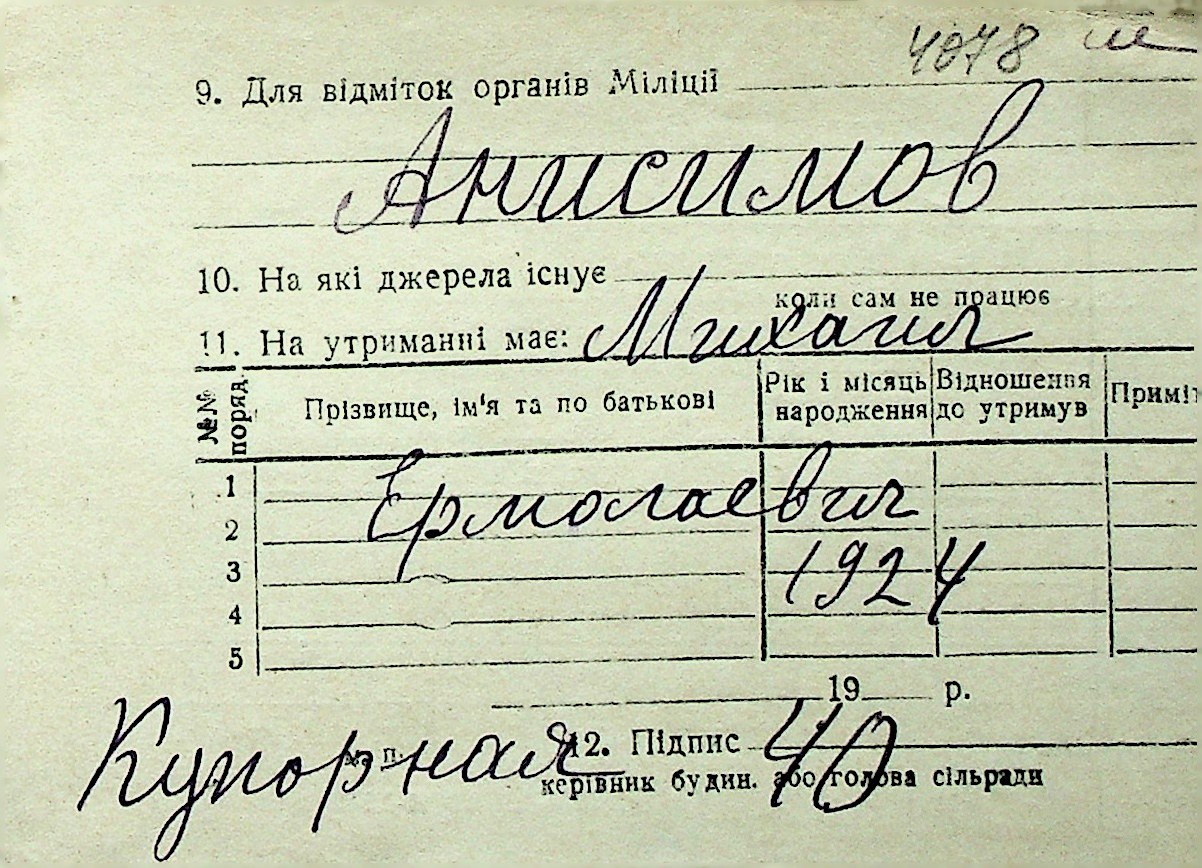 4078 ш
9. Для відміток органів Міліції
Анисимов
10. На які джерела існує
коли сам не працює
11. На утриманні має: Михаил
№№ поряд.
Прізвище, ім'я та по батькові
Рік і місяць народження
Відношення до утримув
Приміт
1
Ермолаевич
2
3
1924
4
5
19 р.
Купорная 40
м. п.
12. Підпис
керівник будин. або голова сільради